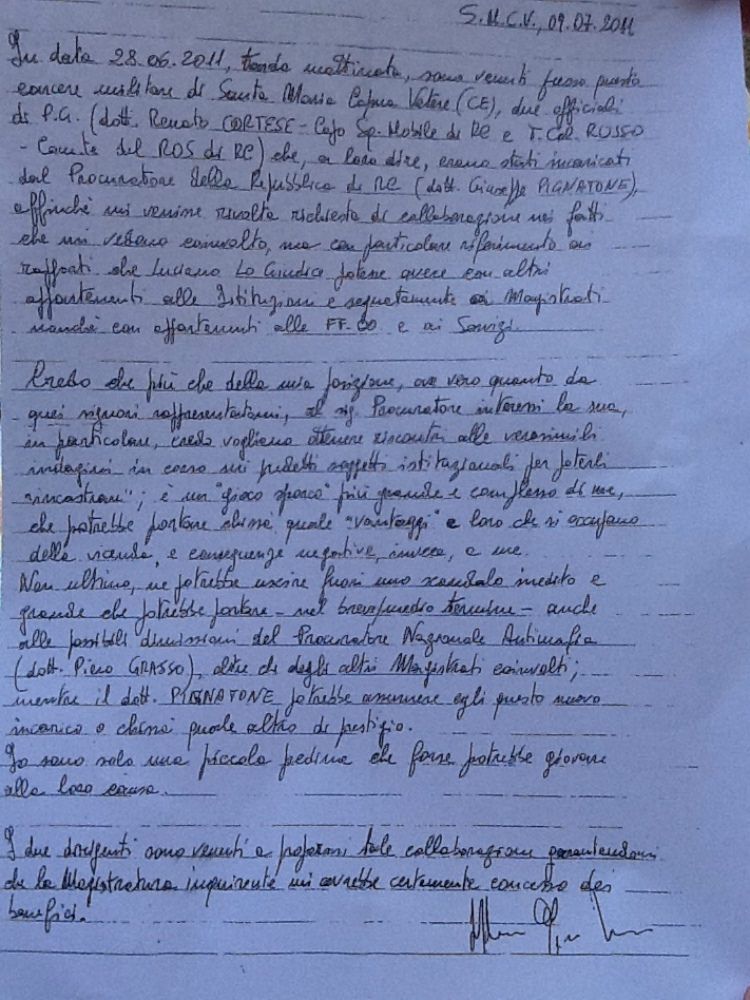 S.M.C.V., 09.07.2011
In data 28.06.2011, tarda mattinata, sono venuti presso questo
carcere militare di Santa Maria Capua Vetere (CE), due ufficiali
di P.G. (dott. Renato CORTESE - Capo Sq. Mobile di RC e T.Col. RUSSO
- Com.te del ROS di RC) che, a loro dire, erano stati incaricati
dal Procuratore della Repubblica di RC (dott. Giuseppe PIGNATONE),
affinché mi venisse rivolta richiesta di collaborazione nei fatti
che mi vedono coinvolto, ma con particolare riferimento ai
rapporti che Luciano Lo Giudice potesse avere con altri
appartenenti alle Istituzioni e segnatamente ai Magistrati
nonché con appartenenti alle FF.OO e ai Servizi.
Credo che più che della mia posizione, ove vero quanto da
quei signori rappresentatomi, al sig. Procuratore interessi la sua,
in particolare, credo vogliano ottenere riscontri alle verosimili
indagini in corso sui predetti soggetti istituzionali per poterli
"incastrare"; è un "gioco sporco" più grande e complesso di me,
che potrebbe portare chissà quale "vantaggi" a loro che si occupano
della vicenda, e conseguenze negative, invece, a me.
Non ultimo, ne potrebbe uscire fuori uno scandalo inedito e
grande che potrebbe portare - nel breve/medio termine - anche
alle possibili dimissioni del Procuratore Nazionale Antimafia
(dott. Piero GRASSO), oltre che degli altri Magistrati coinvolti;
mentre il dott. PIGNATONE potrebbe assumere egli questo nuovo
incarico o chissà quale altro di prestigio.
Io sono solo una piccola pedina che forse potrebbe giovare
alla loro causa.
I due dirigenti sono venuti a propormi tale collaborazione garantendomi
che la Magistratura inquirente mi avrebbe certamente concesso dei
benefici.